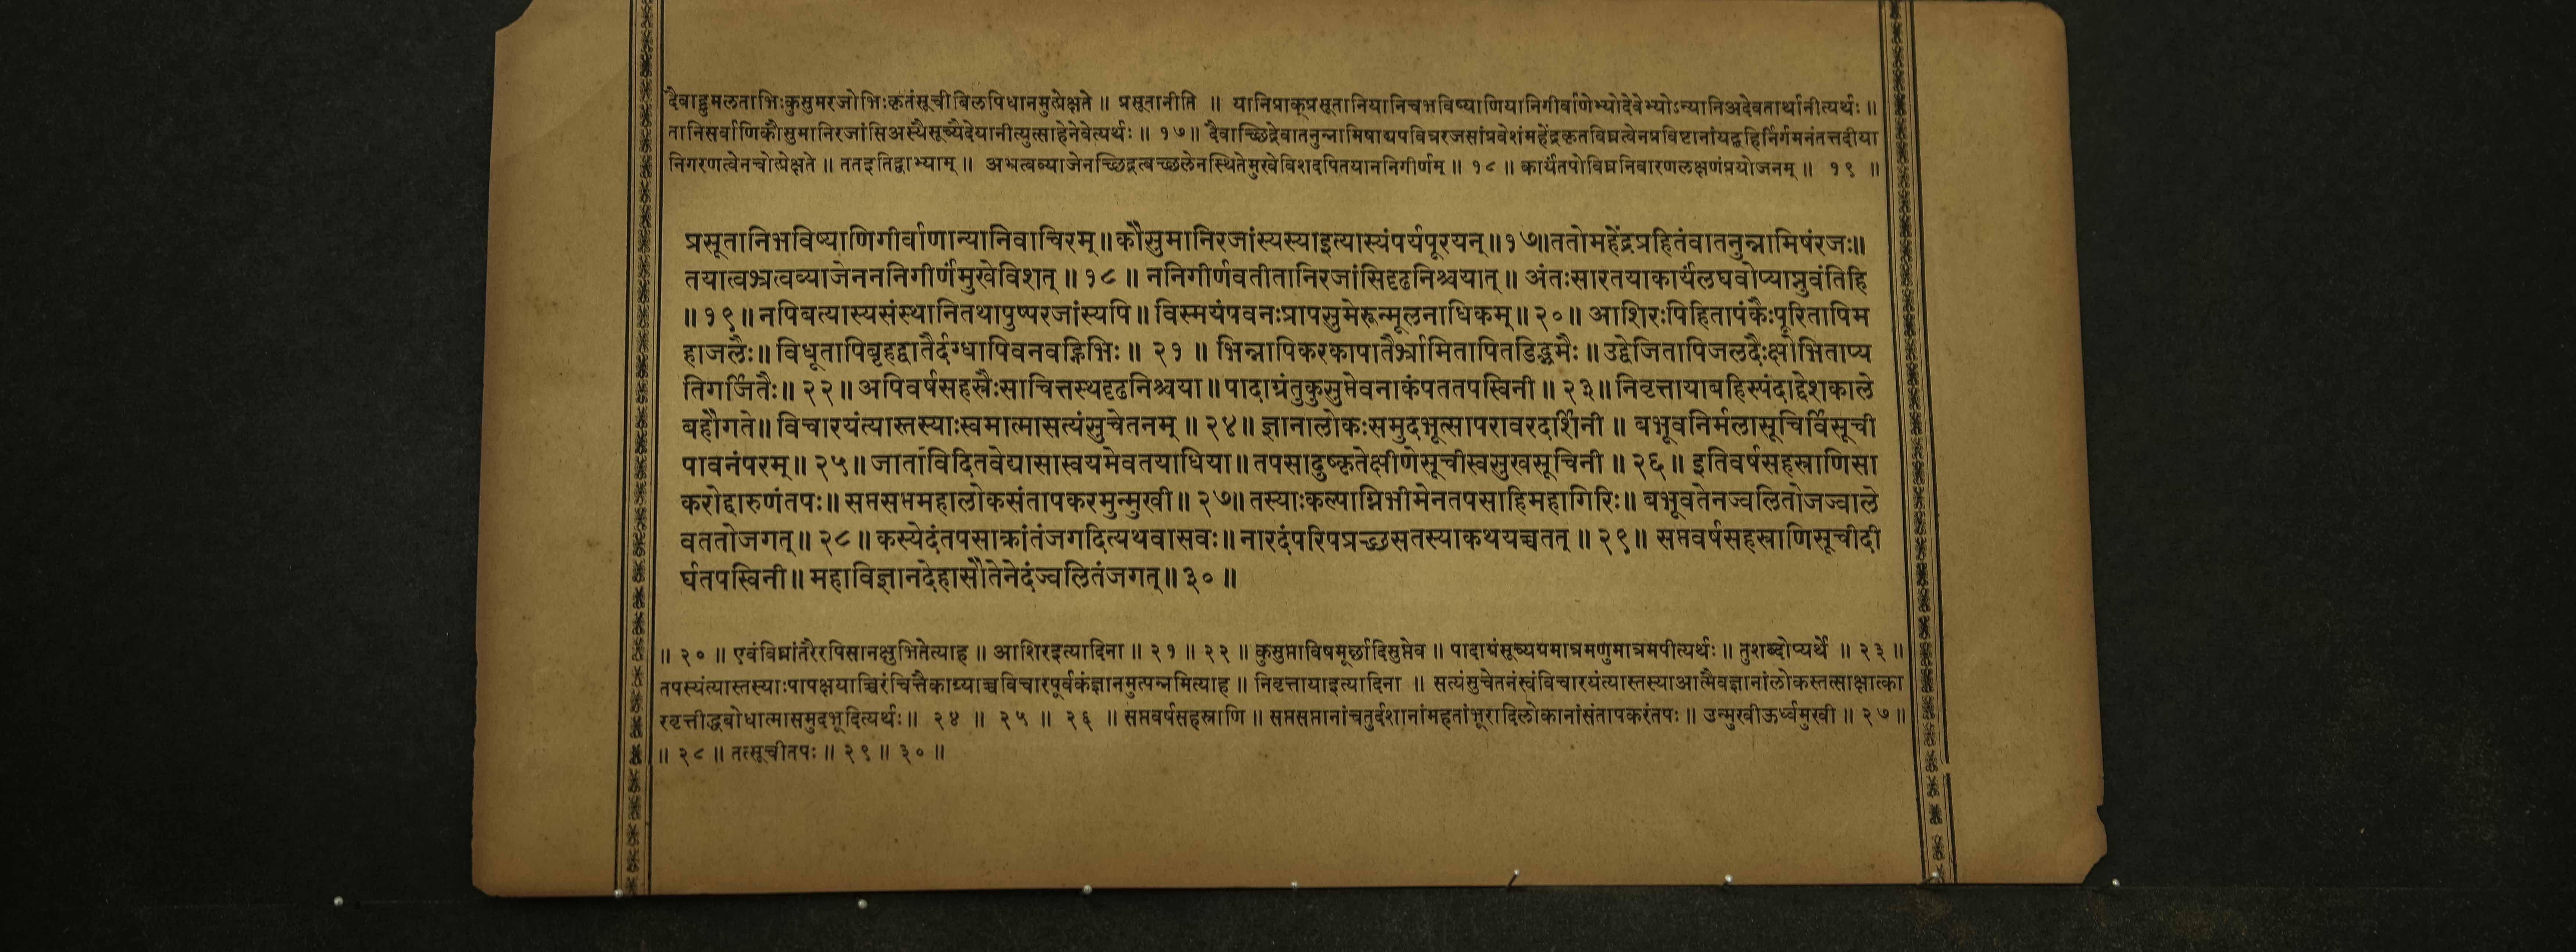 दैवाद्द्रुमलताभिःकुसुमरजोभिःकृतंसूचीबिलपिधानमुत्प्रेक्षते ॥ प्रसूतानीति ॥ यानिप्राक्प्रसूतानियानिचभविष्याणियानिगीर्वाणेभ्योदेवेभ्योऽन्यानिअदेवतार्थानीत्यर्थः ॥
तानिसर्वाणिकौसुमानिरजांसिअस्यैसूच्यैदेयानीत्युत्साहेनेवेत्यर्थः ॥ १७ ॥ दैवाच्छिद्रेवातनुन्नामिषाद्यपवित्ररजसांप्रवेशंमहेंद्रकृतविघ्नत्वेनप्रविष्टानांयद्बहिर्निर्गमनंतत्तदीया
निगरणत्वेनचोत्प्रेक्षते ॥ ततइतिद्वाभ्याम् ॥ अभ्रत्वव्याजेनच्छिद्रत्वच्छलेनस्थितेमुखेविशदपितयाननिगीर्णम् ॥ १८ ॥ कार्यंतपोविघ्ननिवारणलक्षणंप्रयोजनम् ॥ १९ ॥
प्रसूतानिभविष्याणिगीर्वाणान्यानिवाचिरम् ॥ कौसुमानिरजांस्यस्याइत्यास्यंपर्यपूरयन् ॥ १७ ॥ ततोमहेंद्रप्रहितंवातनुन्नामिषंरजः ॥
तयात्वभ्रत्वव्याजेनननिगीर्णंमुखेविशत् ॥ १८ ॥ ननिगीर्णवतीतानिरजांसिदृढनिश्चयात् ॥ अंतःसारतयाकार्यंलघवोप्याप्नुवंतिहि
॥ १९ ॥ नपिबत्यास्यसंस्थानितथापुष्परजांस्यपि ॥ विस्मयंपवनःप्रापसुमेरून्मूलनाधिकम् ॥ २० ॥ आशिरःपिहितापंकैःपूरितापिम
हाजलैः ॥ विधूतापिबृहद्वातैर्दग्धापिवनवह्निभिः ॥ २१ ॥ भिन्नापिकरकापातैर्भ्रामितापितडिद्भ्रमैः ॥ उद्वेजितापिजलदैःक्षोभिताप्य
तिगर्जितैः ॥ २२ ॥ अपिवर्षसहस्रैःसाचित्तस्थदृढनिश्चया ॥ पादाग्रंतुकुसुप्तेवनाकंपततपस्विनी ॥ २३ ॥ निवृत्तायाबहिस्पंदाद्देशकाले
बहौगते ॥ विचारयंत्यास्तस्याःस्वमात्मासत्यंसुचेतनम् ॥ २४ ॥ ज्ञानालोकःसमुदभूत्सापरावरदर्शिनी ॥ बभूवनिर्मलासूचिर्विसूची
पावनंपरम् ॥ २५ ॥ जाताविदितवेद्यासास्वयमेवतयाधिया ॥ तपसादुष्कृतेक्षीणेसूचीस्वसुखसूचिनी ॥ २६ ॥ इतिवर्षसहस्राणिसा
करोद्दारुणंतपः ॥ सप्तसप्तमहालोकसंतापकरमुन्मुखी ॥ २७ ॥ तस्याःकल्पाग्निभीमेनतपसाहिमहागिरिः ॥ बभूवतेनज्वलितोजज्वाले
वततोजगत् ॥ २८ ॥ कस्येदंतपसाक्रांतंजगदित्यथवासवः ॥ नारदंपरिपप्रच्छसतस्याकथयच्चतत् ॥ २९ ॥ सप्तवर्षसहस्राणिसूचीदी
र्घतपस्विनी ॥ महाविज्ञानदेहासौतेनेदंज्वलितंजगत् ॥ ३० ॥
॥ २० ॥ एवंविघ्नांतरैरपिसानक्षुभितेत्याह ॥ आशिरइत्यादिना ॥ २१ ॥ २२ ॥ कुसुप्ताविषमूर्छादिसुप्तेव ॥ पादाग्रंसूच्यग्रमात्रमणुमात्रमपीत्यर्थः ॥ तुशब्दोप्यर्थे ॥ २३ ॥
तपस्यंत्यास्तस्याःपापक्षयाच्चिरंचित्तैकाग्र्याच्चविचारपूर्वकंज्ञानमुत्पन्नमित्याह ॥ निवृत्तायाइत्यादिना ॥ सत्यंसुचेतनंस्वंविचारयंत्यास्तस्याआत्मैवज्ञानांलोकस्तत्साक्षात्का
रवृत्तीद्धबोधात्मासमुदभूदित्यर्थः ॥ २४ ॥ २५ ॥ २६ ॥ सप्तवर्षसहस्राणि ॥ सप्तसप्तानांचतुर्दशानांमहतांभूरादिलोकानांसंतापकरंतपः ॥ उन्मुखीऊर्ध्वमुखी ॥ २७ ॥
॥ २८ ॥ तत्सूचीतपः ॥ २९ ॥ ३० ॥